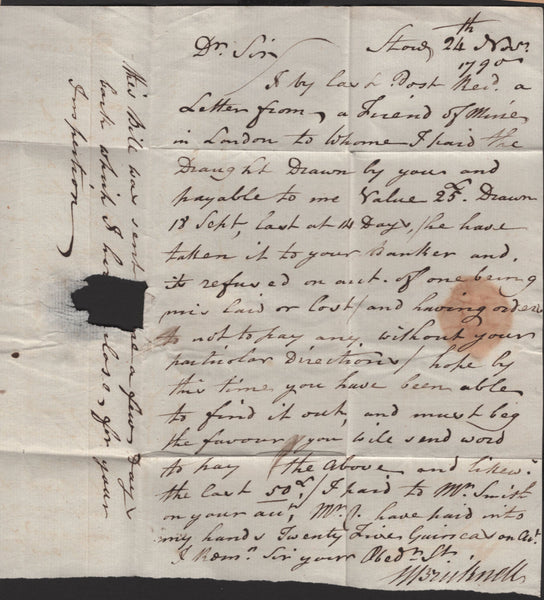 Dr. Sir Stow 24th Novr.
1790
I by last Post Recd. a
Letter from a Friend of Mine
in London to Whome I paid the
Draught Drawn by you and
payable to me Value 25£. Drawn
18 Sept. last at 14 Days / he have
taken it to your Banker and
is refused on acct. of one being
mis laid or lost / and having orders
to not to pay any without your
particular Directions / hope by
this time you have been able
to find it out, and must beg
the favour you will send word
to pay the Above and likew.
the last 50£. / I paid to Mr. Smith
on your acct. Mr. J. have paid into
my hands Twenty Five Guineas on Act.
I Remn. Sir your Obedt. St.
This Bill was sent me a few Days
back which I have close for your
Inspection